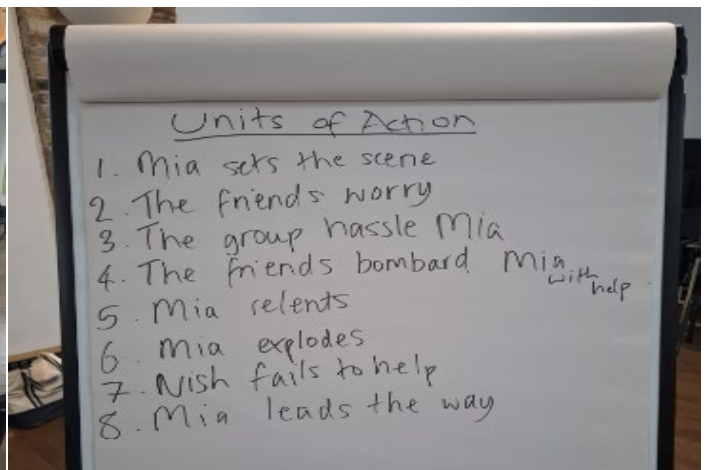 Units of Action
1. Mia sets the scene
2. The friends worry
3. The group hassle Mia
4. The friends bombard Mia with help.
5. Mia relents
6. Mia explodes
7. Nish fails to help
8. Mia leads the way